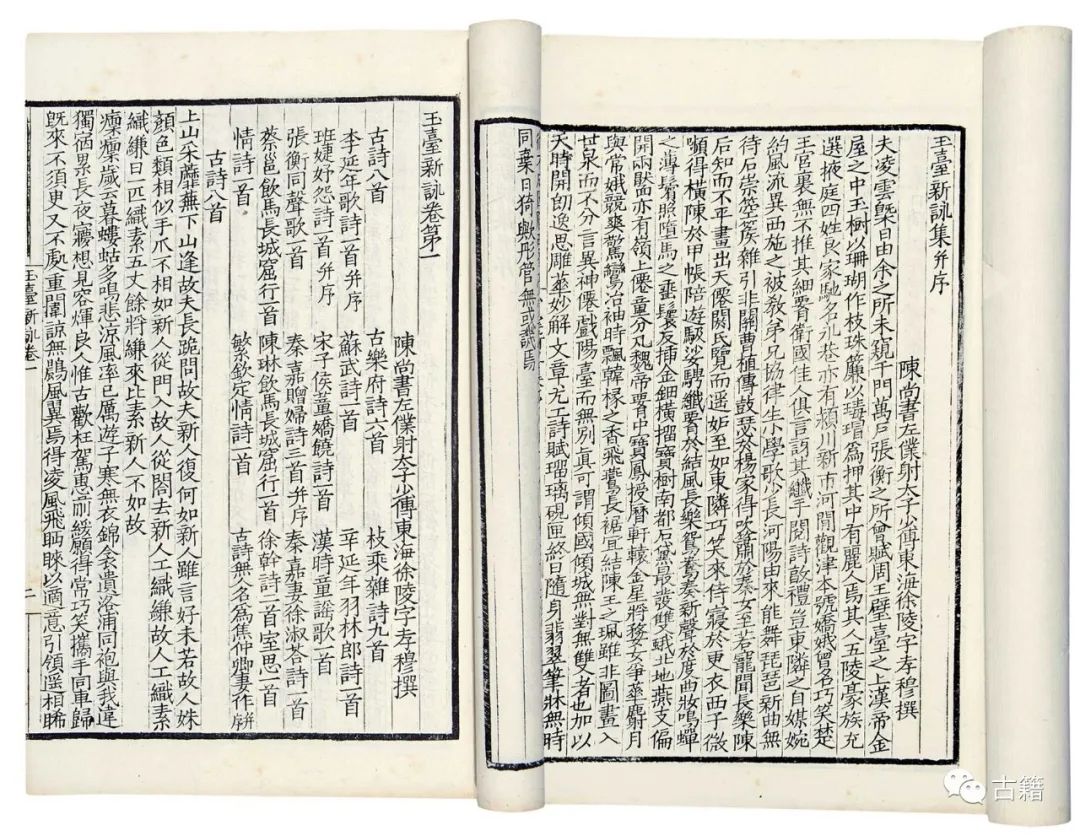 玉臺新詠集并序
陳尚書左僕射太子少傅東海徐陵字孝穆撰
夫凌雲槩日由余之所未窺千門萬戶張衡之所曾賦周王璧臺之上漢帝金
屋之中玉樹以珊瑚作枝珠簾以瑇瑁為押其中有麗人焉其人五陵豪族充
選掖庭四姓良家馳名永巷亦有潁川新市河間觀津本號嬌娥曾名巧笑楚
王宮裏無不推其細腰衛國佳人俱言訝其纖手閱詩敦禮豈東隣之自媒婉
約風流異西施之被教弟兄協律生小學歌少長河陽由來能舞琵琶新曲無
待石崇箜篌雜引非關曹植傳鼓瑟於楊家得吹簫於秦女至若寵聞長樂陳
后知而不平畫出天僊閼氏覽而遥妬至如東隣巧笑來侍寢於更衣西子微
顰得橫陳於甲帳陪遊馺娑騁纖腰於結風長樂鴛鴦奏新聲於度曲妝鳴蟬
之薄鬢照墮馬之垂鬟反插金鈿橫抽寶樹南都石黛最發雙蛾北地燕支偏
開兩靨亦有嶺上僊童分丸魏帝腰中寶鳳授曆軒轅金星將婺女爭華麝月
與常娥競爽驚鸞冶袖時飄韓掾之香飛鷰長裾宜結陳王之珮雖非圖畫入
甘泉而不分言異神僊戲陽臺而無別真可謂傾國傾城無對無雙者也加以
天時開朗逸思雕華妙解文章尤工詩賦瑠璃硯匣終日隨身翡翠筆牀無時
同棄日猗與彤管無或譏焉
玉臺新詠卷第一
陳尚書左僕射太子少傅東海徐陵字孝穆撰
古詩八首 古樂府詩六首 枚乘雜詩九首
李延年歌詩一首并序 蘇武詩一首 辛延年羽林郎詩一首
班婕妤怨詩一首并序 宋子侯董嬌饒詩一首 漢時童謡歌一首
張衡同聲歌一首 秦嘉贈婦詩三首并序 秦嘉妻徐淑荅詩一首
蔡邕飲馬長城窟行一首 陳琳飲馬長城窟行一首 徐幹詩二首室思一首
情詩一首 繁欽定情詩一首 古詩無人名為焦仲卿妻作并序
古詩八首
上山采蘼蕪下山逢故夫長跪問故夫新人復何如新人雖言好未若故人姝
顏色類相似手爪不相如新人從門入故人從閤去新人工織縑故人工織素
織縑日一匹織素五丈餘將縑來比素新人不如故
凜凜歲云暮螻蛄多鳴悲涼風率已厲遊子寒無衣錦衾遺洛浦同袍與我違
獨宿累長夜夢想見容輝良人惟古歡枉駕惠前綏願得常巧笑攜手同車歸
旣來不須臾又不處重闈諒無鷐風翼焉得凌風飛眄睞以適意引領遥相睎
玉臺新詠卷一 一
古籍